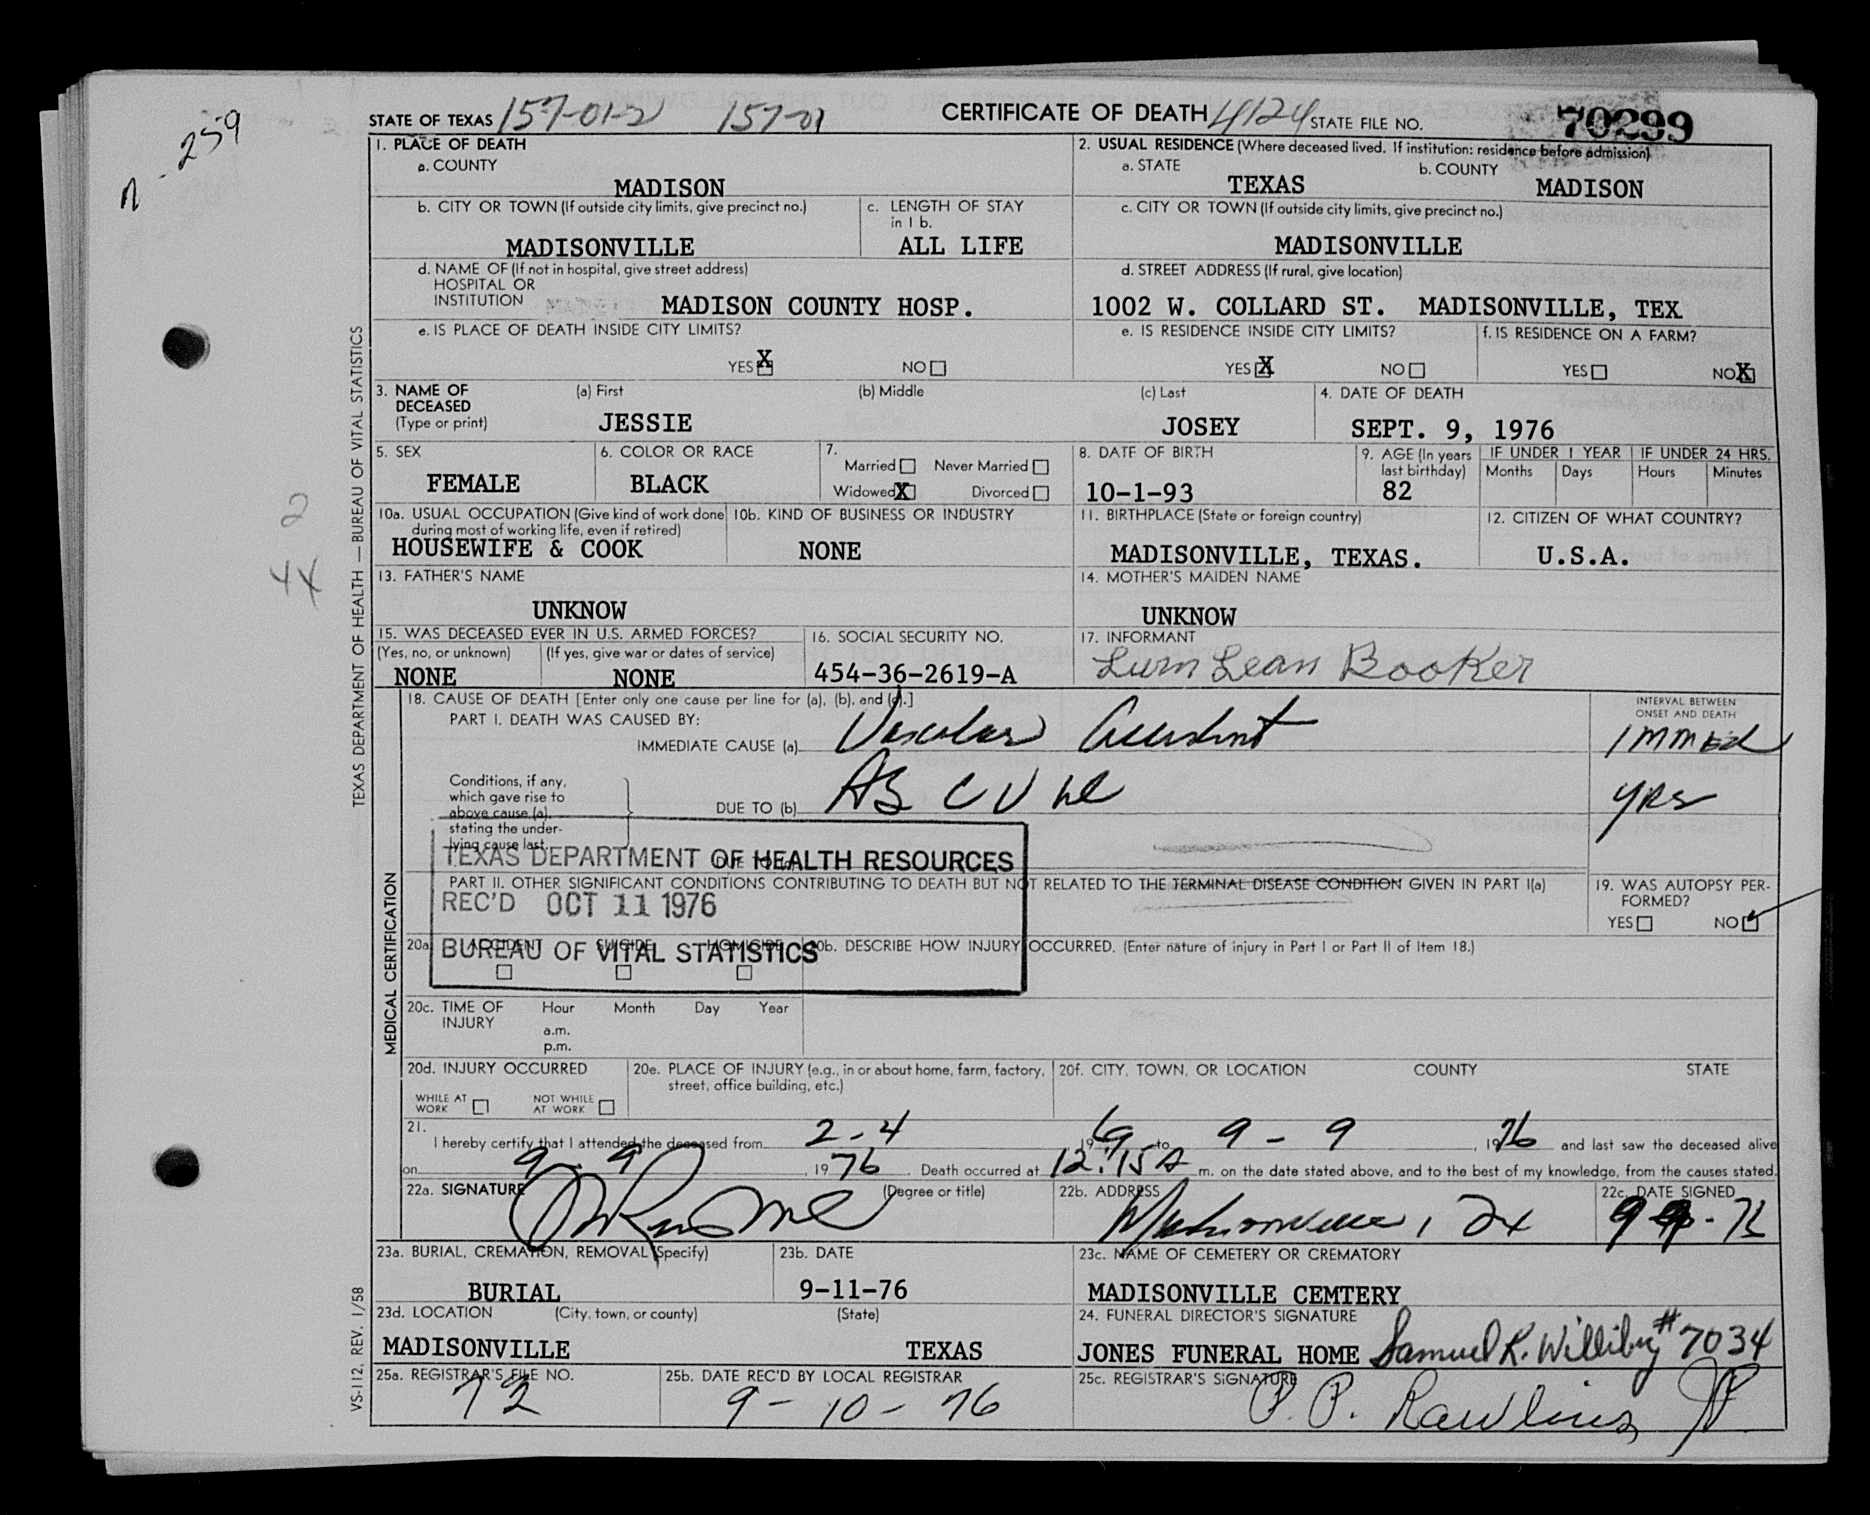 n - 259
STATE OF TEXAS 157-01-2 157-01 CERTIFICATE OF DEATH 4124 STATE FILE NO. 70299
1. PLACE OF DEATH
a. COUNTY
MADISON
2. USUAL RESIDENCE (Where deceased lived. If institution: residence before admission)
a. STATE b. COUNTY
TEXAS MADISON
b. CITY OR TOWN (If outside city limits, give precinct no.)
MADISONVILLE
c. LENGTH OF STAY
in 1 b.
ALL LIFE
c. CITY OR TOWN (If outside city limits, give precinct no.)
MADISONVILLE
d. NAME OF (If not in hospital, give street address)
HOSPITAL OR
INSTITUTION MADISON COUNTY HOSP.
d. STREET ADDRESS (If rural, give location)
1002 W. COLLARD ST. MADISONVILLE, TEX
e. IS PLACE OF DEATH INSIDE CITY LIMITS?
YES X NO
e. IS RESIDENCE INSIDE CITY LIMITS?
YES X NO
f. IS RESIDENCE ON A FARM?
YES NO X
3. NAME OF DECEASED (Type or print)
(a) First (b) Middle (c) Last
JESSIE JOSEY
4. DATE OF DEATH
SEPT. 9, 1976
5. SEX
FEMALE
6. COLOR OR RACE
BLACK
7.
Married Never Married
Widowed X Divorced
8. DATE OF BIRTH
10-1-93
9. AGE (In years
last birthday)
82
IF UNDER 1 YEAR IF UNDER 24 HRS.
Months Days Hours Minutes
10a. USUAL OCCUPATION (Give kind of work done
during most of working life, even if retired)
HOUSEWIFE & COOK
10b. KIND OF BUSINESS OR INDUSTRY
NONE
11. BIRTHPLACE (State or foreign country)
MADISONVILLE, TEXAS.
12. CITIZEN OF WHAT COUNTRY?
U.S.A.
13. FATHER'S NAME
UNKNOW
14. MOTHER'S MAIDEN NAME
UNKNOW
15. WAS DECEASED EVER IN U.S. ARMED FORCES?
(Yes, no, or unknown) (If yes, give war or dates of service)
NONE NONE
16. SOCIAL SECURITY NO.
454-36-2619-A
17. INFORMANT
Lurn Lean Booker
18. CAUSE OF DEATH [Enter only one cause per line for (a), (b), and (c).]
PART I. DEATH WAS CAUSED BY:
IMMEDIATE CAUSE (a) Vascular Accident
INTERVAL BETWEEN
ONSET AND DEATH
Immed
Conditions, if any,
which gave rise to
above cause (a),
stating the under-
lying cause last.
DUE TO (b)
yrs
TEXAS DEPARTMENT OF HEALTH RESOURCES
REC'D OCT 11 1976
BUREAU OF VITAL STATISTICS
PART II. OTHER SIGNIFICANT CONDITIONS CONTRIBUTING TO DEATH BUT NOT RELATED TO THE TERMINAL DISEASE CONDITION GIVEN IN PART I(a)
19. WAS AUTOPSY PER-
FORMED?
YES NO
20a. ACCIDENT SUICIDE HOMICIDE
20b. DESCRIBE HOW INJURY OCCURRED. (Enter nature of injury in Part I or Part II of Item 18.)
20c. TIME OF INJURY
Hour Month Day Year
a.m.
p.m.
20d. INJURY OCCURRED
WHILE AT WORK NOT WHILE AT WORK
20e. PLACE OF INJURY (e.g., in or about home, farm, factory,
street, office building, etc.)
20f. CITY, TOWN, OR LOCATION COUNTY STATE
21.
I hereby certify that I attended the deceased from 2-4 1969 to 9-9, 1976 and last saw the deceased alive
on 9-9, 1976. Death occurred at 12:15 A m. on the date stated above, and to the best of my knowledge, from the causes stated.
22a. SIGNATURE (Degree or title)
22b. ADDRESS
Madisonville, Tx
22c. DATE SIGNED
23a. BURIAL, CREMATION, REMOVAL (Specify)
BURIAL
23b. DATE
9-11-76
23c. NAME OF CEMETERY OR CREMATORY
MADISONVILLE CEMTERY
23d. LOCATION (City, town, or county) (State)
MADISONVILLE TEXAS
24. FUNERAL DIRECTOR'S SIGNATURE
JONES FUNERAL HOME Samuel R. Williby #7034
25a. REGISTRAR'S FILE NO.
72
25b. DATE REC'D BY LOCAL REGISTRAR
9-10-76
25c. REGISTRAR'S SIGNATURE
P. P. Rawlins JP
TEXAS DEPARTMENT OF HEALTH — BUREAU OF VITAL STATISTICS
MEDICAL CERTIFICATION
VS-112, REV. 1/58
2
44